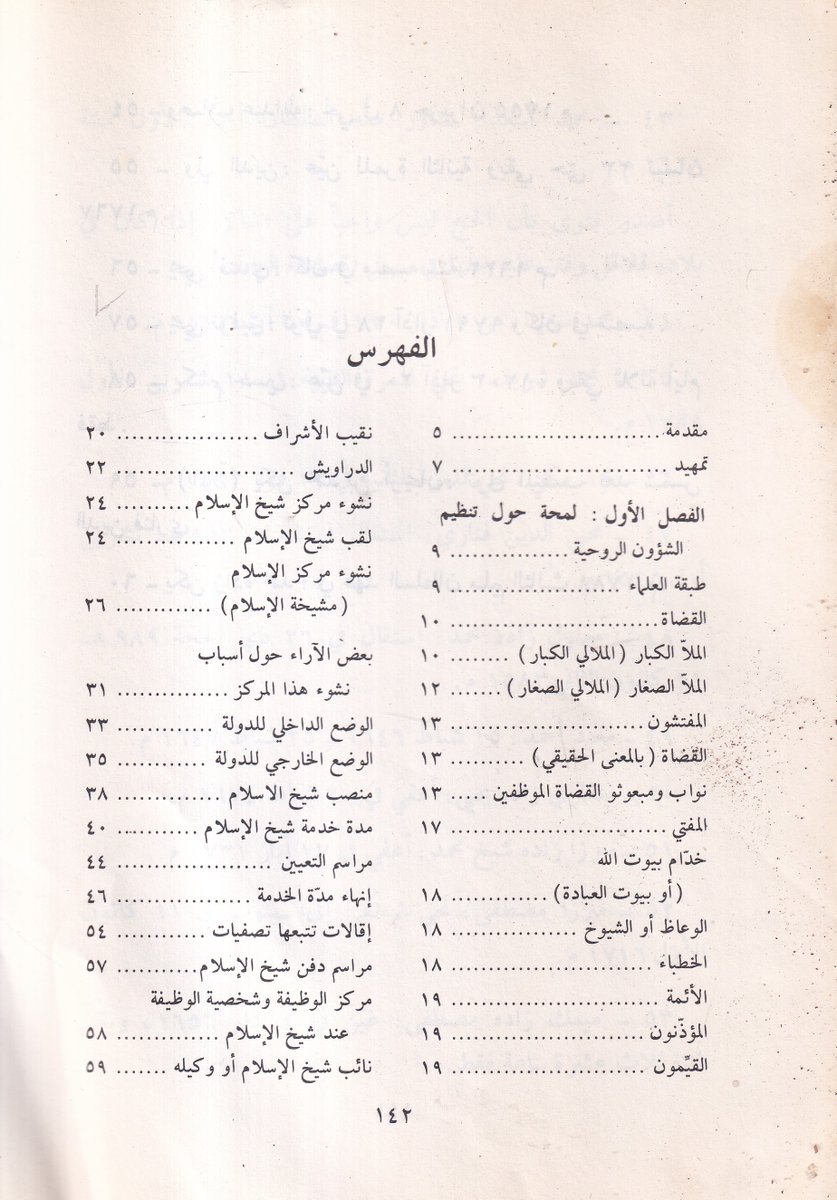 الفهرس
مقدمة ............................ ٥
تمهيد ............................ ٧
الفصل الأول : لمحة حول تنظيم
الشؤون الروحية ................ ٩
طبقة العلماء ....................... ٩
القضاة ............................ ١٠
الملاّ الكبار ( الملالي الكبار ) ........ ١٠
الملاّ الصغار ( الملالي الصغار ) ....... ١٢
المفتشون .......................... ١٣
القضاة ( بالمعنى الحقيقي ) .......... ١٣
نواب ومبعوثو القضاة الموظفين ..... ١٣
المفتي ............................. ١٧
خدّام بيوت الله
( أو بيوت العبادة ) ............. ١٨
الوعاظ أو الشيوخ ................ ١٨
الخطباء ........................... ١٨
الأئمة ............................ ١٩
المؤذّنون ........................... ١٩
القيِّمون .......................... ١٩
نقيب الأشراف ................... ٢٠
الدراويش ........................ ٢٢
نشوء مركز شيخ الإسلام .......... ٢٤
لقب شيخ الإسلام ................ ٢٤
نشوء مركز الإسلام
( مشيخة الإسلام ) ............. ٢٦
بعض الآراء حول أسباب
نشوء هذا المركز ............... ٣١
الوضع الداخلي للدولة ............. ٣٣
الوضع الخارجي للدولة ............ ٣٥
منصب شيخ الاسلام .............. ٣٨
مدة خدمة شيخ الإسلام ........... ٤٠
مراسم التعيين ..................... ٤٤
إنهاء مدّة الخدمة .................. ٤٦
إقالات تتبعها تصفيات ............. ٥٤
مراسم دفن شيخ الإسلام ........... ٥٧
مركز الوظيفة وشخصية الوظيفة
عند شيخ الإسلام .............. ٥٨
نائب شيخ الإسلام أو وكيله ....... ٥٩
١٤٢